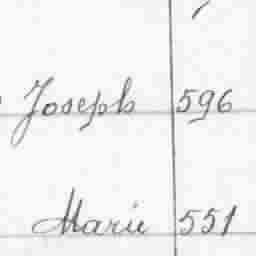 Joseph 596
Marie 551